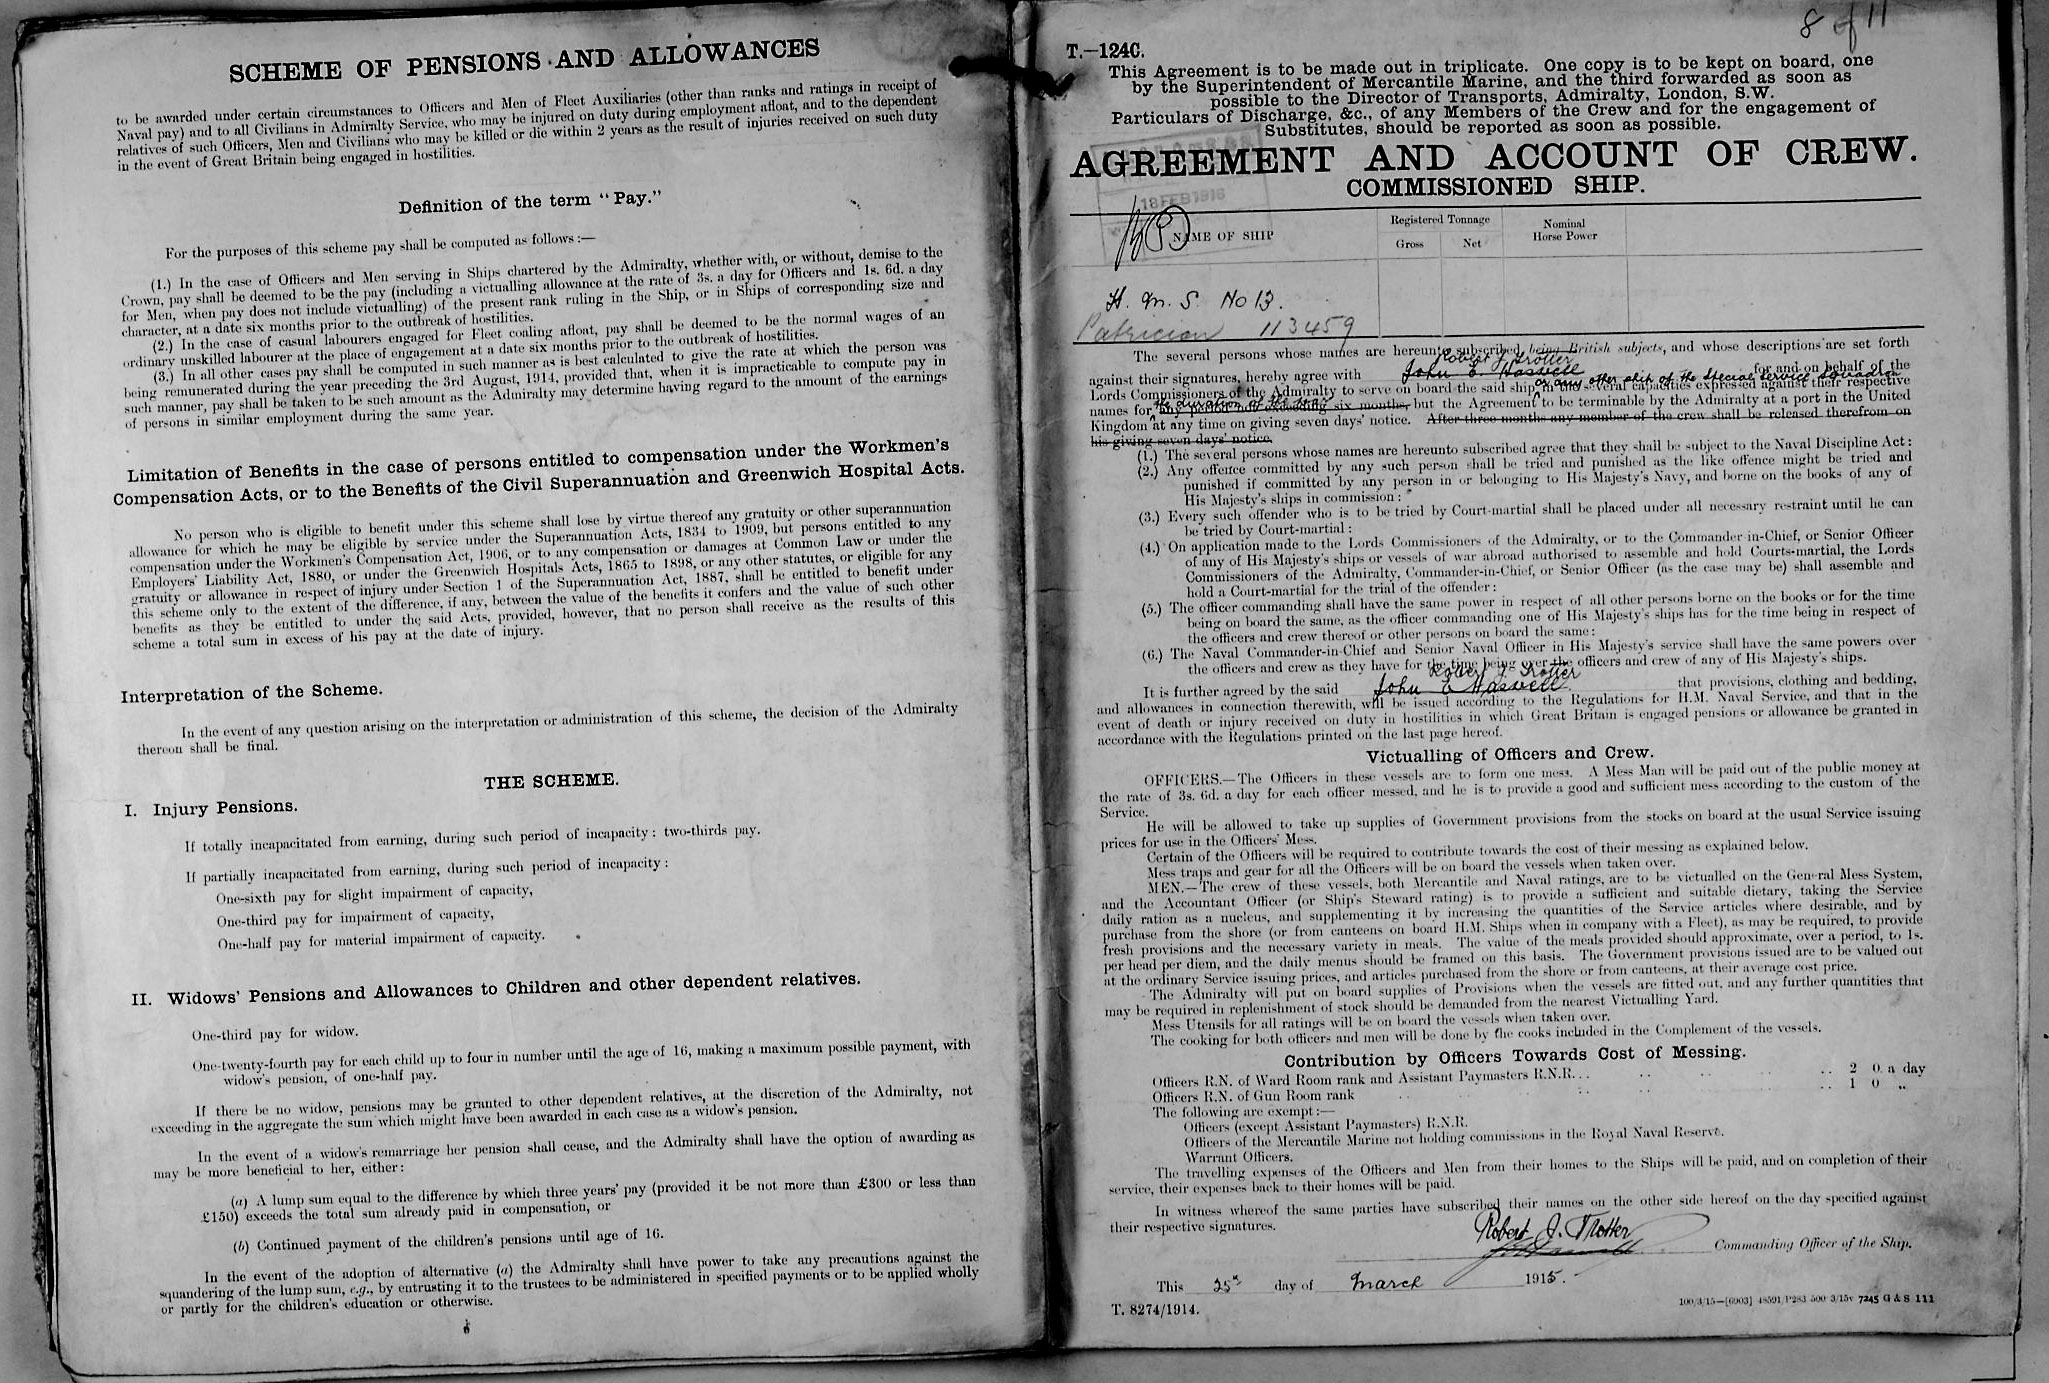 SCHEME OF PENSIONS AND ALLOWANCES
to be awarded under certain circumstances to Officers and Men of Fleet Auxiliaries (other than ranks and ratings in receipt of
Naval pay) and to all Civilians in Admiralty Service, who may be injured on duty during employment afloat, and to the dependent
relatives of such Officers, Men and Civilians who may be killed or die within 2 years as the result of injuries received on such duty
in the event of Great Britain being engaged in hostilities.
Definition of the term "Pay."
For the purposes of this scheme pay shall be computed as follows:—
(1.) In the case of Officers and Men serving in Ships chartered by the Admiralty, whether with, or without, demise to the
Crown, pay shall be deemed to be the pay (including a victualling allowance at the rate of 3s. a day for Officers and 1s. 6d. a day
for Men, when pay does not include victualling) of the present rank ruling in the Ship, or in Ships of corresponding size and
character, at a date six months prior to the outbreak of hostilities.
(2.) In the case of casual labourers engaged for Fleet coaling afloat, pay shall be deemed to be the normal wages of an
ordinary unskilled labourer at the place of engagement at a date six months prior to the outbreak of hostilities.
(3.) In all other cases pay shall be computed in such manner as is best calculated to give the rate at which the person was
being remunerated during the year preceding the 3rd August, 1914, provided that, when it is impracticable to compute pay in
such manner, pay shall be taken to be such amount as the Admiralty may determine having regard to the amount of the earnings
of persons in similar employment during the same year.
Limitation of Benefits in the case of persons entitled to compensation under the Workmen's
Compensation Acts, or to the Benefits of the Civil Superannuation and Greenwich Hospital Acts.
No person who is eligible to benefit under this scheme shall lose by virtue thereof any gratuity or other superannuation
allowance for which he may be eligible by service under the Superannuation Acts, 1834 to 1909, but persons entitled to any
compensation under the Workmen's Compensation Act, 1906, or to any compensation or damages at Common Law or under the
Employers' Liability Act, 1880, or under the Greenwich Hospitals Acts, 1865 to 1898, or any other statutes, or eligible for any
gratuity or allowance in respect of injury under Section 1 of the Superannuation Act, 1887, shall be entitled to benefit under
this scheme only to the extent of the difference, if any, between the value of the benefits it confers and the value of such other
benefits as they be entitled to under the said Acts, provided, however, that no person shall receive as the results of this
scheme a total sum in excess of his pay at the date of injury.
Interpretation of the Scheme.
In the event of any question arising on the interpretation or administration of this scheme, the decision of the Admiralty
thereon shall be final.
THE SCHEME.
I. Injury Pensions.
If totally incapacitated from earning, during such period of incapacity: two-thirds pay.
If partially incapacitated from earning, during such period of incapacity:
One-sixth pay for slight impairment of capacity,
One-third pay for impairment of capacity,
One-half pay for material impairment of capacity.
II. Widows' Pensions and Allowances to Children and other dependent relatives.
One-third pay for widow.
One-twenty-fourth pay for each child up to four in number until the age of 16, making a maximum possible payment, with
widow's pension, of one-half pay.
If there be no widow, pensions may be granted to other dependent relatives, at the discretion of the Admiralty, not
exceeding in the aggregate the sum which might have been awarded in each case as a widow's pension.
In the event of a widow's remarriage her pension shall cease, and the Admiralty shall have the option of awarding as
may be more beneficial to her, either:
(a) A lump sum equal to the difference by which three years' pay (provided it be not more than £300 or less than
£150) exceeds the total sum already paid in compensation, or
(b) Continued payment of the children's pensions until age of 16.
In the event of the adoption of alternative (a) the Admiralty shall have power to take any precautions against the
squandering of the lump sum, e.g., by entrusting it to the trustees to be administered in specified payments or to be applied wholly
or partly for the children's education or otherwise.
6
8 of 11
T.—124C.
This Agreement is to be made out in triplicate. One copy is to be kept on board, one
by the Superintendent of Mercantile Marine, and the third forwarded as soon as
possible to the Director of Transports, Admiralty, London, S.W.
Particulars of Discharge, &c., of any Members of the Crew and for the engagement of
Substitutes, should be reported as soon as possible.
AGREEMENT AND ACCOUNT OF CREW.
COMMISSIONED SHIP.
18 FEB 1916
NAME OF SHIP
Registered Tonnage
Gross
Net
Nominal
Horse Power
H. M. S No 13.
Patrician 113459
The several persons whose names are hereunto subscribed, being British subjects, and whose descriptions are set forth
Robert J. Trotter
against their signatures, hereby agree with John E. Haswell for and on behalf of the
or any other ship of the Special Service Squadron
Lords Commissioners of the Admiralty to serve on board the said ship, in the several capacities expressed against their respective
the duration of the war
names for any period not exceeding six months, but the Agreement to be terminable by the Admiralty at a port in the United
Kingdom at any time on giving seven days' notice. After three months any member of the crew shall be released therefrom on
his giving seven days' notice.
(1.) The several persons whose names are hereunto subscribed agree that they shall be subject to the Naval Discipline Act:
(2.) Any offence committed by any such person shall be tried and punished as the like offence might be tried and
punished if committed by any person in or belonging to His Majesty's Navy, and borne on the books of any of
His Majesty's ships in commission:
(3.) Every such offender who is to be tried by Court-martial shall be placed under all necessary restraint until he can
be tried by Court-martial:
(4.) On application made to the Lords Commissioners of the Admiralty, or to the Commander in-Chief, or Senior Officer
of any of His Majesty's ships or vessels of war abroad authorised to assemble and hold Courts-martial, the Lords
Commissioners of the Admiralty, Commander-in-Chief, or Senior Officer (as the case may be) shall assemble and
hold a Court-martial for the trial of the offender:
(5.) The officer commanding shall have the same power in respect of all other persons borne on the books or for the time
being on board the same, as the officer commanding one of His Majesty's ships has for the time being in respect of
the officers and crew thereof or other persons on board the same:
(6.) The Naval Commander-in-Chief and Senior Naval Officer in His Majesty's service shall have the same powers over
the officers and crew as they have for the time being over the officers and crew of any of His Majesty's ships.
Robert J. Trotter
It is further agreed by the said John E Haswell that provisions, clothing and bedding,
and allowances in connection therewith, will be issued according to the Regulations for H.M. Naval Service, and that in the
event of death or injury received on duty in hostilities in which Great Britain is engaged pensions or allowance be granted in
accordance with the Regulations printed on the last page hereof.
Victualling of Officers and Crew.
OFFICERS.—The Officers in these vessels are to form one mess. A Mess Man will be paid out of the public money at
the rate of 3s. 6d. a day for each officer messed, and he is to provide a good and sufficient mess according to the custom of the
Service.
He will be allowed to take up supplies of Government provisions from the stocks on board at the usual Service issuing
prices for use in the Officers' Mess.
Certain of the Officers will be required to contribute towards the cost of their messing as explained below.
Mess traps and gear for all the Officers will be on board the vessels when taken over.
MEN.—The crew of these vessels, both Mercantile and Naval ratings, are to be victualled on the General Mess System,
and the Accountant Officer (or Ship's Steward rating) is to provide a sufficient and suitable dietary, taking the Service
daily ration as a nucleus, and supplementing it by increasing the quantities of the Service articles where desirable, and by
purchase from the shore (or from canteens on board H.M. Ships when in company with a Fleet), as may be required, to provide
fresh provisions and the necessary variety in meals. The value of the meals provided should approximate, over a period, to 1s.
per head per diem, and the daily menus should be framed on this basis. The Government provisions issued are to be valued out
at the ordinary Service issuing prices, and articles purchased from the shore or from canteens, at their average cost price.
The Admiralty will put on board supplies of Provisions when the vessels are fitted out, and any further quantities that
may be required in replenishment of stock should be demanded from the nearest Victualling Yard.
Mess Utensils for all ratings will be on board the vessels when taken over.
The cooking for both officers and men will be done by the cooks included in the Complement of the vessels.
Contribution by Officers Towards Cost of Messing.
Officers R.N. of Ward Room rank and Assistant Paymasters R.N.R. .. .. .. .. .. 2 0 a day
Officers R.N. of Gun Room rank .. .. .. .. .. 1 0 „
The following are exempt:—
Officers (except Assistant Paymasters) R.N.R.
Officers of the Mercantile Marine not holding commissions in the Royal Naval Reserve.
Warrant Officers.
The travelling expenses of the Officers and Men from their homes to the Ships will be paid, and on completion of their
service, their expenses back to their homes will be paid.
In witness whereof the same parties have subscribed their names on the other side hereof on the day specified against
their respective signatures.
Robert J. Trotter
Commanding Officer of the Ship.
This 25th day of March 1915.
T. 8274/1914.
100/3/15—[6903] 48591/P283 500 3/15v 7245 G & S 111